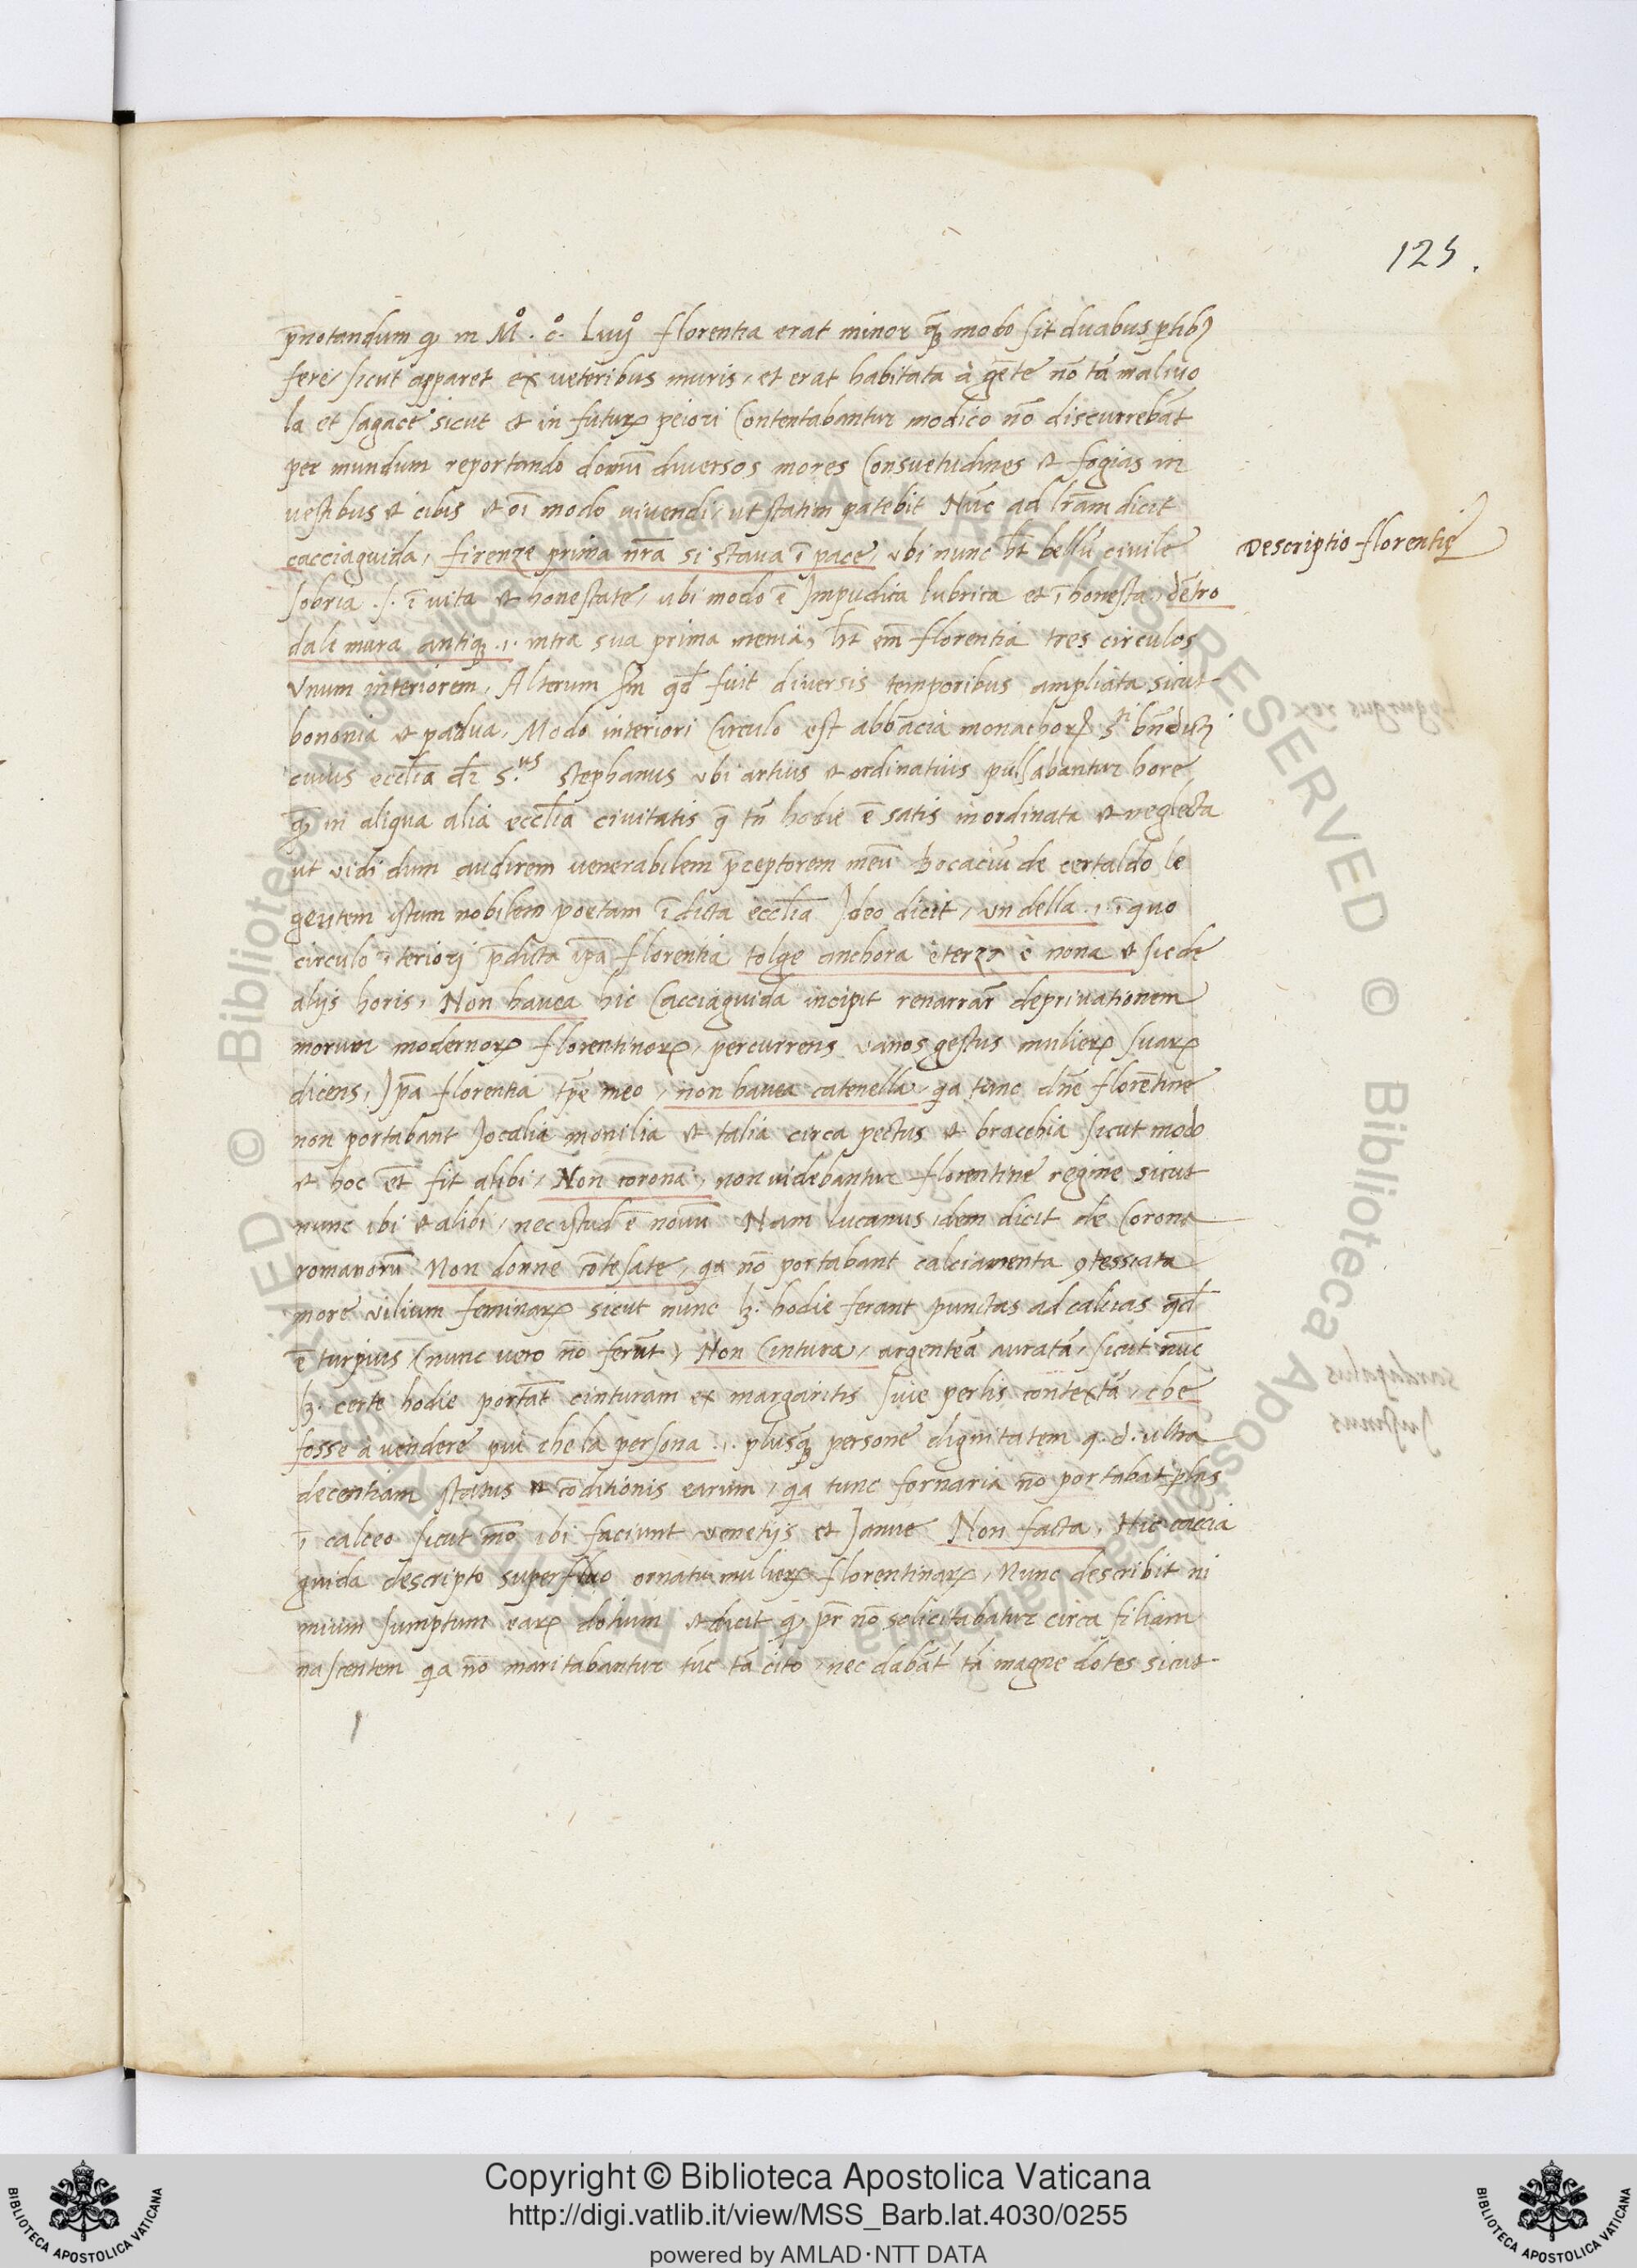 125.
p̄notandum qͥ in Mº. cº. Luijº florentia erat minor q̃ȝ modo sit duabus ptibꝫ
fere, sicut apparet ex veteribus muris, et erat habitata à gēte nō tā malivo
la et sagace sicut et in futuꝝ peiori Contentabantur modico nō discurrebāt
per mundum reportando domū diversos mores Consuetudines et fogias in
vestibus et cibis et oī modo vivendi, ut statim patebit Nūc ad lr̄am dicit
cacciaguida, firenze prima nr̄a si stava ī pace, ubi nunc ht̄ bellū civile
Descriptio florentię
sobria .s. ī vita et honestate, ubi modo ē Impudica lubrica et īhonesta, dētro
dale mura antiqȝ .i. intra sua prima menia, ht̄ em̄ florentia tres circulos
Unum interiorem, Alterum sm̄ qd̄ fuit diversis temporibus ampliata sicut
bononia et padua, Modo interiori Circulo est abbacia monachoꝝ sͭⁱ bn̄dicti
cuius eccl̄ia dr̄ s.ᵘˢ Stephanus ubi artius et ordinatius pulsabantur hore
qȝ in aliqua alia eccl̄ia civitatis q̄ tn̄ hodie ē satis inordinata et neglecta
ut vidi dum audirem venerabilem p̄ceptorem meū Bocaciū de certaldo le
gentem istum nobilem poetam ī dicta eccl̄ia Ideo dicit, un della .i. ī quo
circulo īteriori p̄dicta ip̄a florentia tolge anchora è terza è nona et sic de
alijs horis, Non havea hic Cacciaguida incipit renarrar̄ deprivationem
morum modernoꝝ florentinoꝝ, percurrens vanos gestus mulieꝝ suaꝝ
dicens, Ip̄a florentia tp̄e meo, non havea catenella, qa tunc dn̄e florētine
non portabant Jocalia monilia et talia circa pectus et bracchia sicut modo
et hoc et̄ fit alibi, Non corona, non videbantur florentine regine sicut
nunc ibi et alibi, nec istud ē novū Nam lucanus idem dicit de Corona
romanorū Non donne cōtesate, qa nō portabant calciamenta ꝯtessiata
more vilium feminaꝝ sicut nunc lȝ. hodie ferant punctas ad caligas qd̄
ē turpius (nunc vero nō ferūt), Non Cintura, argenteā auratā, sicut nūc
lȝ. certe hodie portāt cinturam ex margaritis sive perlis contextā, che
fosse à vendere pui che la persona .i. plusqȝ persone dignitatem q. d. ultra
decentiam status et cōditionis earum, qa tunc fornaria nō portabat plas
ī calceo sicut mō ibi faciunt venetijs et Janue Non facta, Hic caccia
guida descripto superfluo ornatu mulieꝝ florentinaꝝ, Nunc describit ni
mium sumptum eaꝝ dotium et dicit qͥ pr̄ nō solicitabatur circa filiam
nascentem qa nō maritabantur tūc tā cito, nec dabāt' tā magne dotes sicut
© Biblioteca Apostolica Vaticana ALL RIGHTS RESERVED
Copyright © Biblioteca Apostolica Vaticana
http://digi.vatlib.it/view/MSS_Barb.lat.4030/0255
powered by AMLAD·NTT DATA
BIBLIOTECA APOSTOLICA VATICANA
BIBLIOTECA APOSTOLICA VATICANA